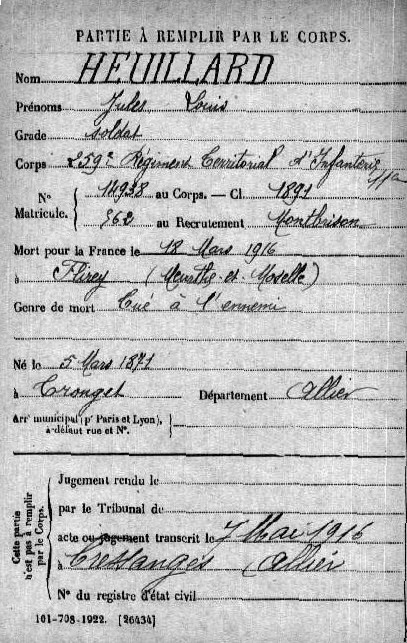 PARTIE À REMPLIR PAR LE CORPS.
Nom HEUILLARD
Prénoms Jules Louis
Grade soldat
Corps 259e Régiment Territorial d'Infanterie
No Matricule. { 14938 au Corps. — Cl 1891
362 au Recrutement Montbrison
Mort pour la France le 18 Mars 1916
à Flirey (Meurthe-et-Moselle)
Genre de mort Tué à l'ennemi
Né le 5 Mars 1871
à Tronget Département Allier
Arrt municipal (pr Paris et Lyon), à défaut rue et No. }
Cette partie n'est pas à remplir par le Corps. {
Jugement rendu le
par le Tribunal de
acte ou jugement transcrit le 7 Mai 1916
à Cressanges Allier
No du registre d'état civil
101-708-1922. [26434]